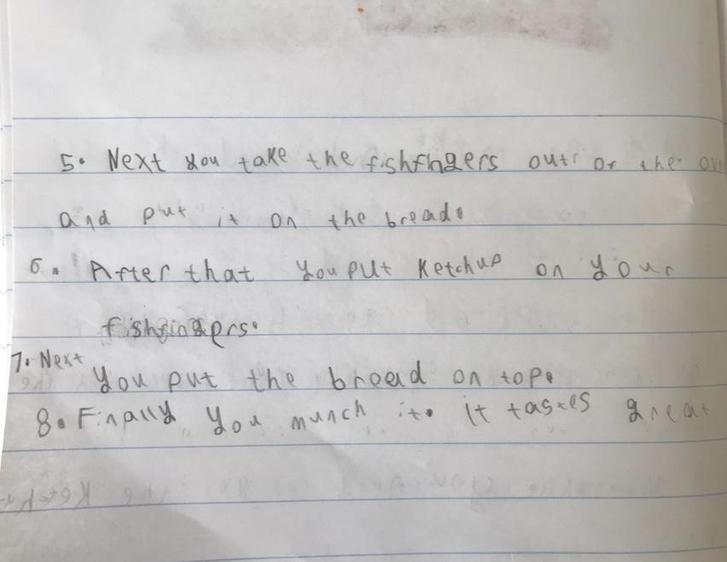 5. Next you take the fishfngers out of the
and put it on the bread.
6. After that you put ketchup on your
fishfingers.
7. Next
you put the bread on top.
8. Finally you munch it. It tastes great